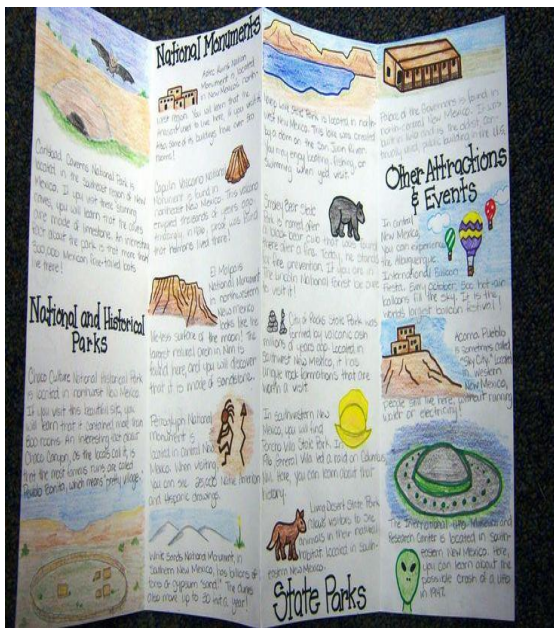 Carlsbad Caverns National Park is
located in the southeast region of New
Mexico. If you visit these stunning
caves, you will learn that the caves
are made of limestone. An interesting
fact about the park is that more than
300,000 Mexican free-tailed bats
live there!
National and Historical
Parks
Chaco Culture National Historical Park
is located in northwest New Mexico.
If you visit this beautiful site, you
will learn that it contained more than
800 rooms. An interesting fact about
Chaco Canyon, as the locals call it, is
that the most famous ruins are called
Pueblo Bonito, which means pretty village.
National Monuments
Aztec Ruins Nation
Monument is located
in New Mexico's north-
west region. You will learn that the
used to live here, if you visit it.
Also some of its buildings have over 400
rooms!
Capulin Volcano National
Monument is found in
northeast New Mexico. This volcano
erupted thousands of years ago.
was found
that humans lived there!
El Malpais
National Monument
in northwestern
New Mexico
looks like the
surface of the moon! The
largest natural arch in N.M. is
found here, and you will discover
that it is made of sandstone.
Petroglyph National
Monument is
located in central New
Mexico. When visiting
you can see 25,000
Native American
and Hispanic drawings.
White Sands National Monument, in
Southern New Mexico, has billions of
tons of gypsum "sand." The dunes
also move up to 30 feet a year!
Lake State Park is located in north-
west New Mexico. This lake was created
by a dam on the San Juan River.
You may enjoy boating, fishing, or
swimming when you visit.
Smokey Bear State
Park is named after
a black bear cub that was found
there after a fire. Today, he stands
for fire prevention. If you are in
the Lincoln National Forest be sure
to visit it!
City of Rocks State Park was
formed by volcanic ash
millions of years ago. Located in
southwest New Mexico, it has
unique rock formations that are
worth a visit.
In southwestern New
Mexico, you will find
Pancho Villa State Park. In
1916 General Villa led a raid on Columbus,
N.M. Here, you can learn about that
history.
Living Desert State Park
allows visitors to see
animals in their natural
habitat located in south-
eastern New Mexico.
State Parks
Palace of the Governors is found in
north-central New Mexico. It was
built in 1610 and is the oldest, con-
tinuously used, public building in the U.S.
Other Attractions
& Events
In central
New Mexico,
you can experience
the Albuquerque
International Balloon
Fiesta. Every October, 800 hot-air
balloons fill the sky. It is the
world's largest balloon festival!
Acoma Pueblo
is sometimes called
"Sky City." Located
in western
New Mexico,
people still live here, without running
water or electricity!
The International UFO Museum and
Research Center is located in south-
eastern New Mexico. Here,
you can learn about the
possible crash of a UFO
in 1947.